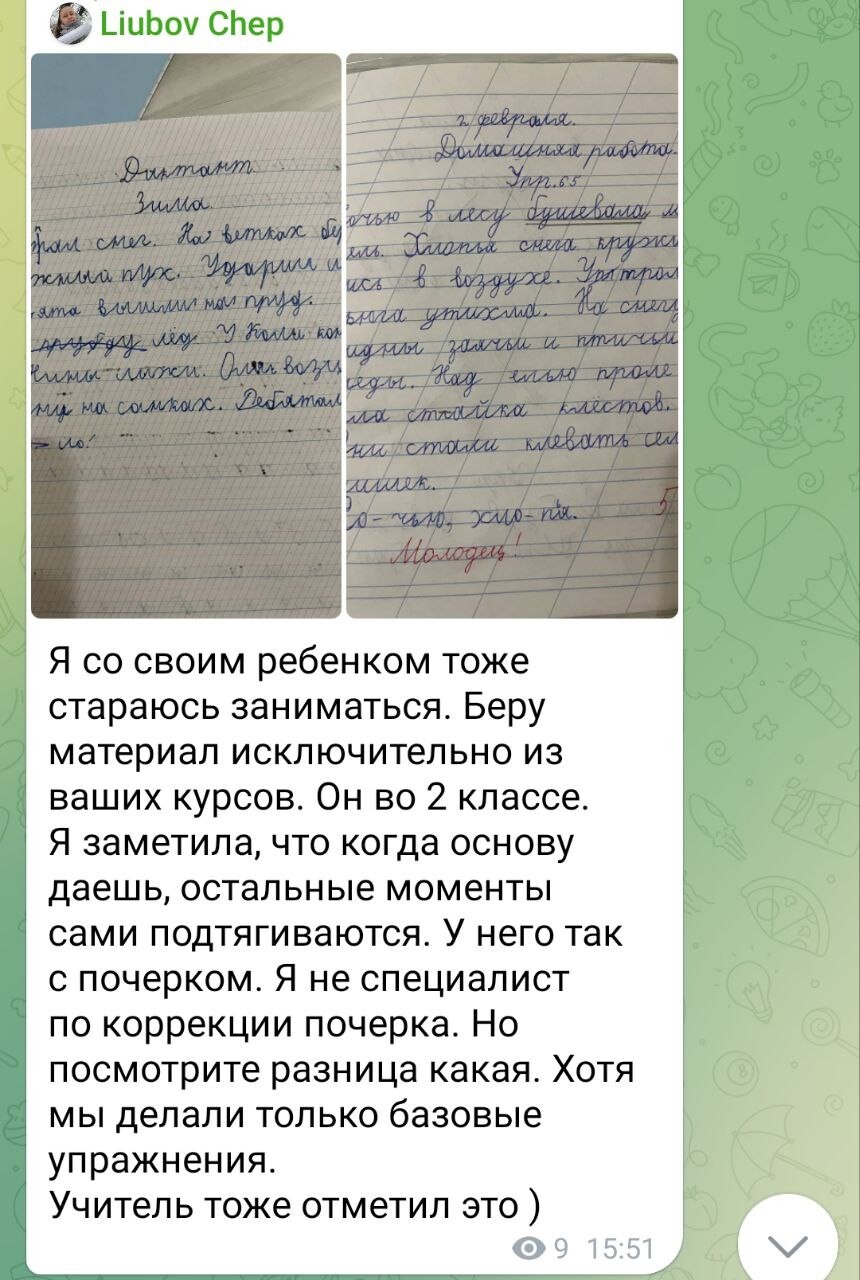 Liubov Chep
Диктант
Зима
снег. На ветках
пух. Ударил
вышли на пруд.
лёд. У Коли
лыжи. Оля
на санках. Ребятам
2 февраля.
Домашняя работа.
Упр. 65
очью в лесу бушевала м
ель. Хлопья снега кружи
ись в воздухе. Утром
ьюга утихла. На снегу
идны заячьи и птичьи
еды. Над елью проле
ла стайка клестов.
ни стали клевать сем
шишек.
о-чью, хло-пья. 5
Молодец!
Я со своим ребенком тоже
стараюсь заниматься. Беру
материал исключительно из
ваших курсов. Он во 2 классе.
Я заметила, что когда основу
даешь, остальные моменты
сами подтягиваются. У него так
с почерком. Я не специалист
по коррекции почерка. Но
посмотрите разница какая. Хотя
мы делали только базовые
упражнения.
Учитель тоже отметил это )
9 15:51